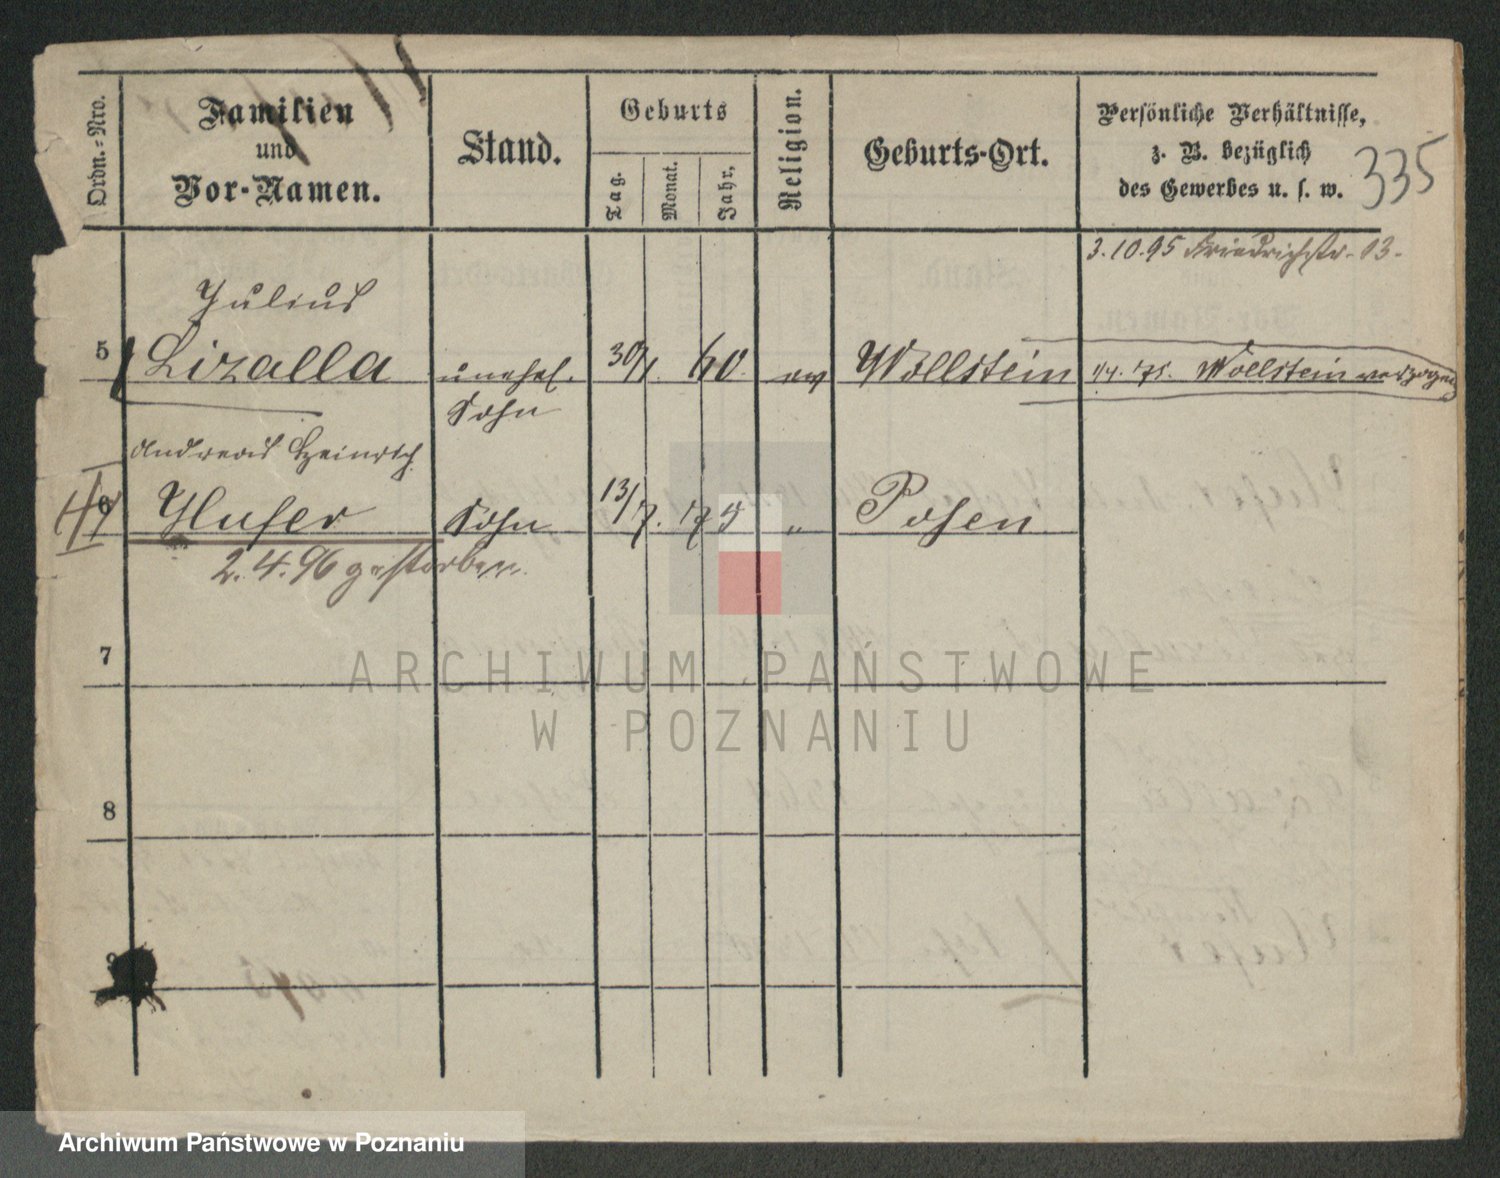 Ordn.-Nro.
Familien
und
Vor-Namen.
Stand.
Geburts
Tag.
Monat.
Jahr.
Religion.
Geburts-Ort.
Persönliche Verhältnisse,
z. B. bezüglich
des Gewerbes u. s. w.
335
3.10.95 Friedrichstr. 13.
Julius
5 Lizalla unehel. 30/1. 60. ev Wollstein 1/4. 75. Wollstein verzogen
Sohn
Andreas Heinrich
6 Hufer Sohn 13/7. 75 " Posen
2.4.96 gestorben.
7
8
9
ARCHIWUM PAŃSTWOWE
W POZNANIU
Archiwum Państwowe w Poznaniu